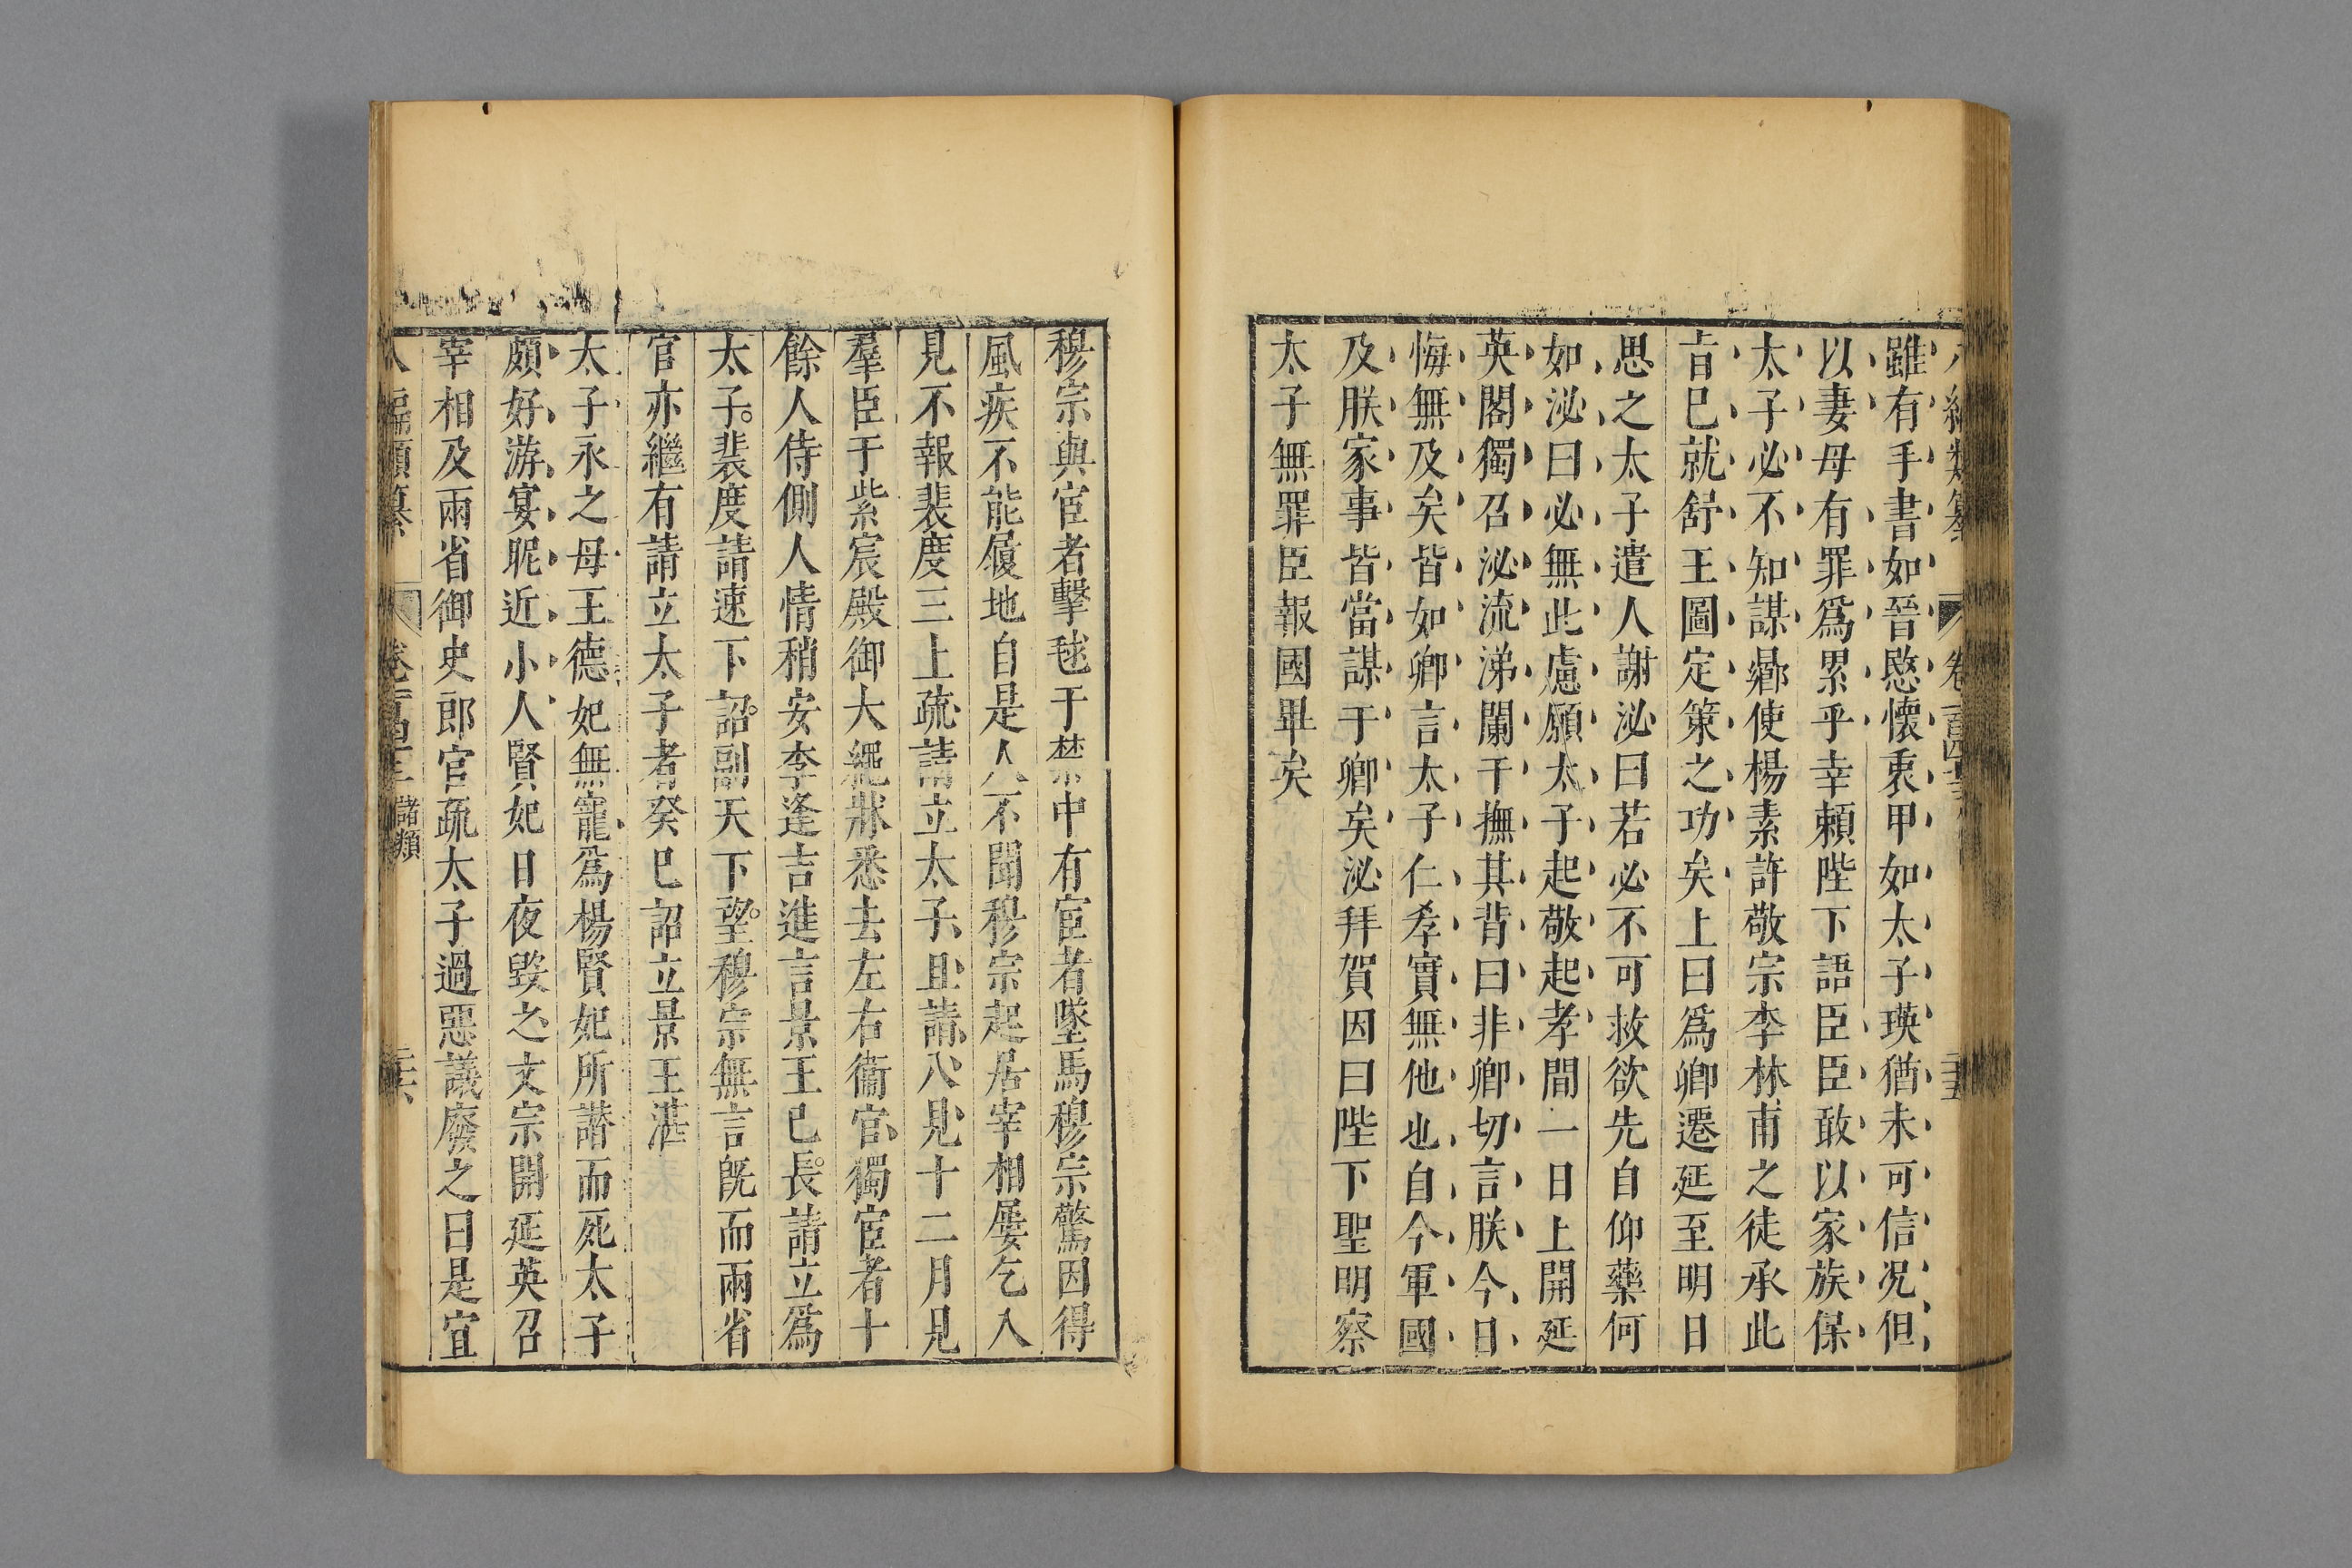 雖有手書如晉愍懷衷甲如太子瑛猶未可信况但
以妻母有罪爲累乎幸賴陛下語臣臣敢以家族保
太子必不知謀曏使楊素許敬宗李林甫之徒承此
㫖巳就舒王圖定策之功矣上曰爲卿遷延至明日
思之太子遣人謝泌曰若必不可救欲先自仰藥何
如泌曰必無此慮願太子起敬起孝間一日上開延
英閣獨召泌流涕闌干撫其背曰非卿切言朕今日
悔無及矣皆如卿言太子仁孝實無他也自今軍國
及朕家事皆當謀于卿矣泌拜賀因曰陛下聖明察
太子無罪臣報國畢矣
穆宗與宦者擊毬于禁中有宦者墜馬穆宗驚因得
風疾不能履地自是人不聞穆宗起居宰相屢乞入
見不報裴度三上疏請立太子且請入見十二月見
羣臣于紫宸殿御大繩牀悉去左右衞官獨宦者十
餘人侍側人情稍安李逢吉進言景王已長請立爲
太子裴度請速下詔副天下望穆宗無言旣而兩省
官亦繼有請立太子者癸巳詔立景王湛
太子永之母王德妃無寵爲楊賢妃所譖而死太子
頗好游宴昵近小人賢妃日夜毀之文宗開延英召
宰相及兩省御史郎官疏太子過惡議廢之曰是宜
八編類纂 卷一百四十三 儲類 二十六